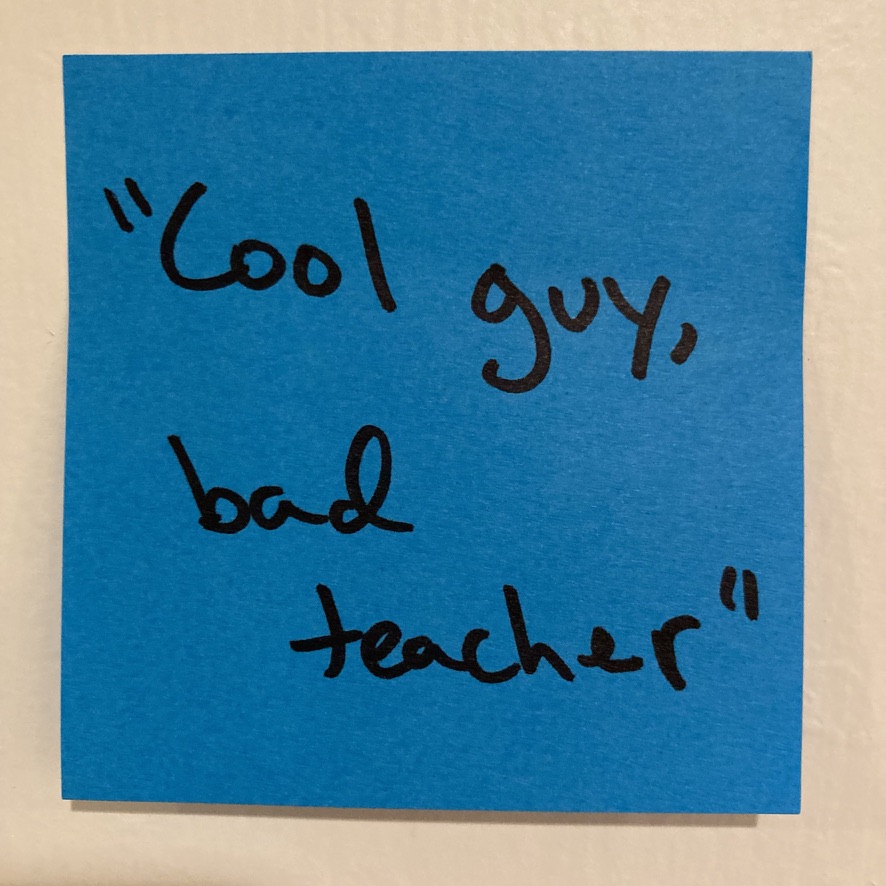 "Cool guy,
bad
teacher"